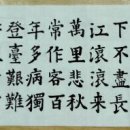 下不盡長
江滾滾來
萬里悲秋
常作客百
年多病獨
登臺艱難